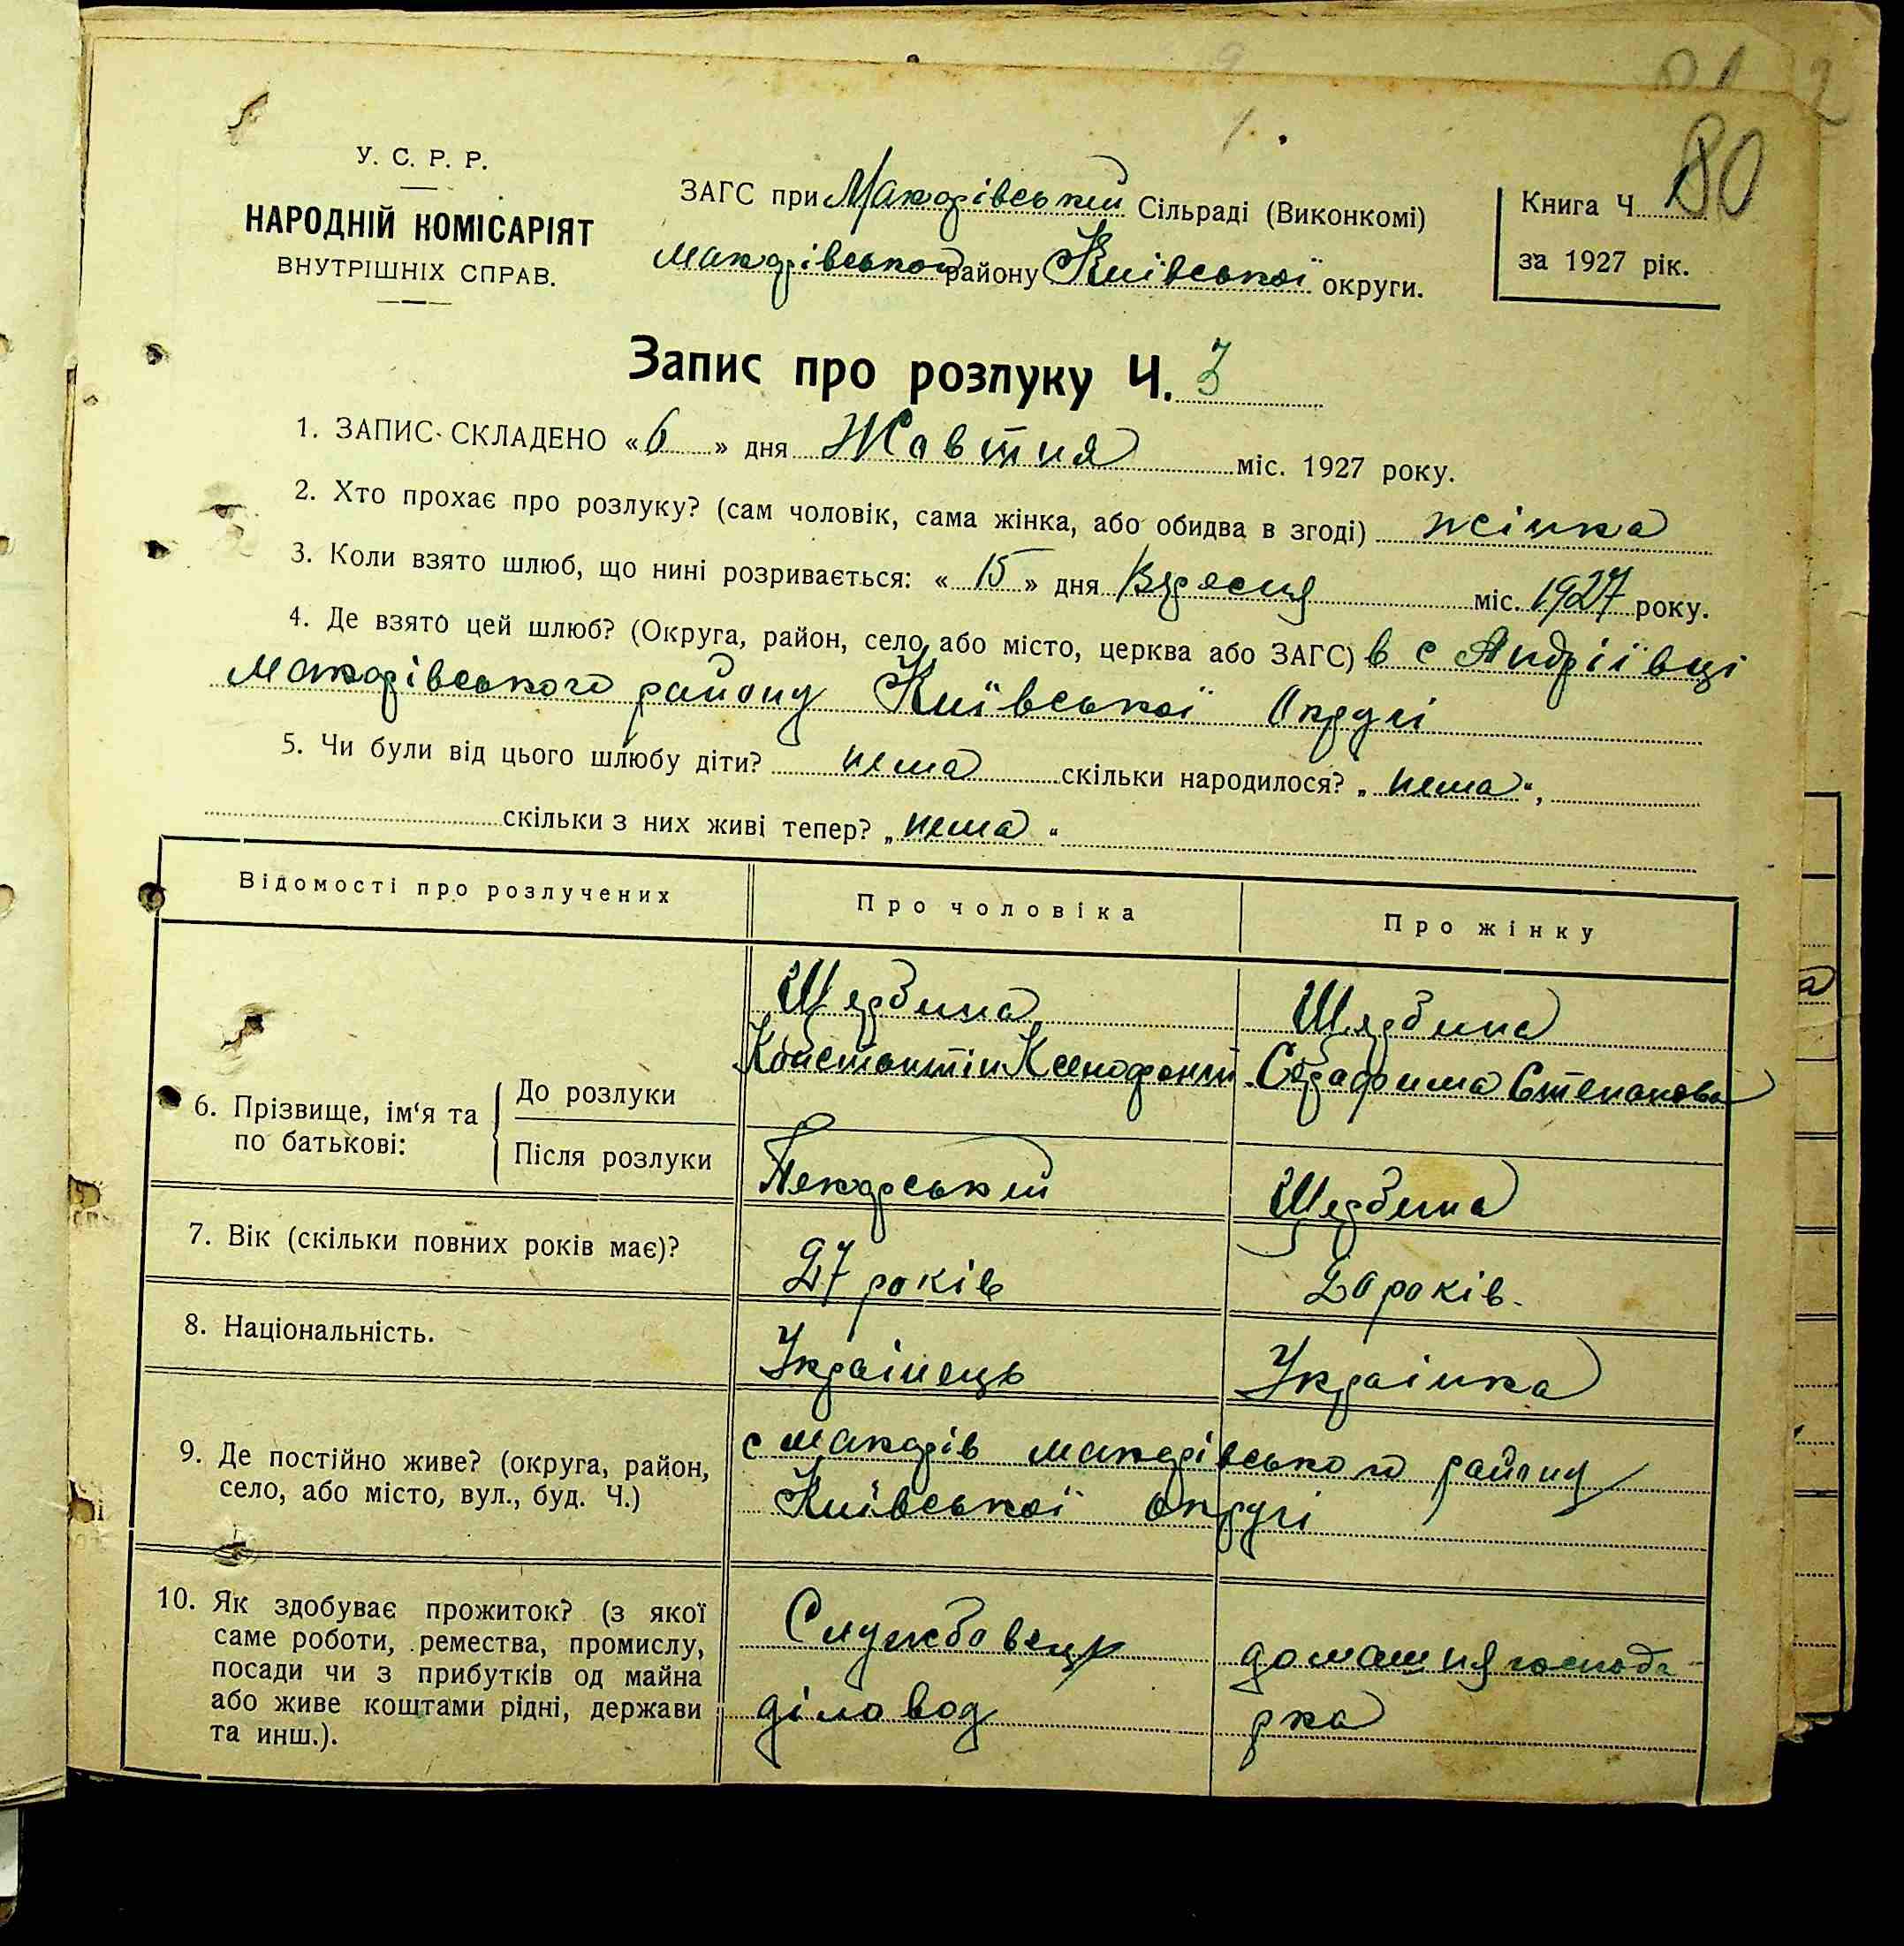 80
У. С. Р. Р.
НАРОДНІЙ КОМІСАРІЯТ
ВНУТРІШНІХ СПРАВ.
ЗАГС при Макарівській Сільраді (Виконкомі)
Макарівського району Київської округи.
Книга Ч.
за 1927 рік.
Запис про розлуку Ч. 3
1. ЗАПИС СКЛАДЕНО «6» дня Жавтня міс. 1927 року.
2. Хто прохає про розлуку? (сам чоловік, сама жінка, або обидва в згоді) жінка
3. Коли взято шлюб, що нині розривається: «15» дня Вересня міс. 1927 року.
4. Де взято цей шлюб? (Округа, район, село або місто, церква або ЗАГС) в с Андріївці
Макарівського району Київської Округі
5. Чи були від цього шлюбу діти? нема скільки народилося? „нема“,
скільки з них живі тепер? „нема“
Відомості про розлучених
Про чоловіка
Про жінку
6. Прізвище, ім‘я та
по батькові:
До розлуки
Щербина
Константін Ксенофонт.
Щербина
Серафима Степанова
Після розлуки
Пекарський
Щербина
7. Вік (скільки повних років має)?
27 років
20 років.
8. Національність.
Українець
Українка
9. Де постійно живе? (округа, район,
село, або місто, вул., буд. Ч.)
с Макарів Макарівського району
Київської округі
10. Як здобуває прожиток? (з якої
саме роботи, ремества, промислу,
посади чи з прибутків од майна
або живе коштами рідні, держави
та инш.).
Службовець
діловод
домашня господа-
рка